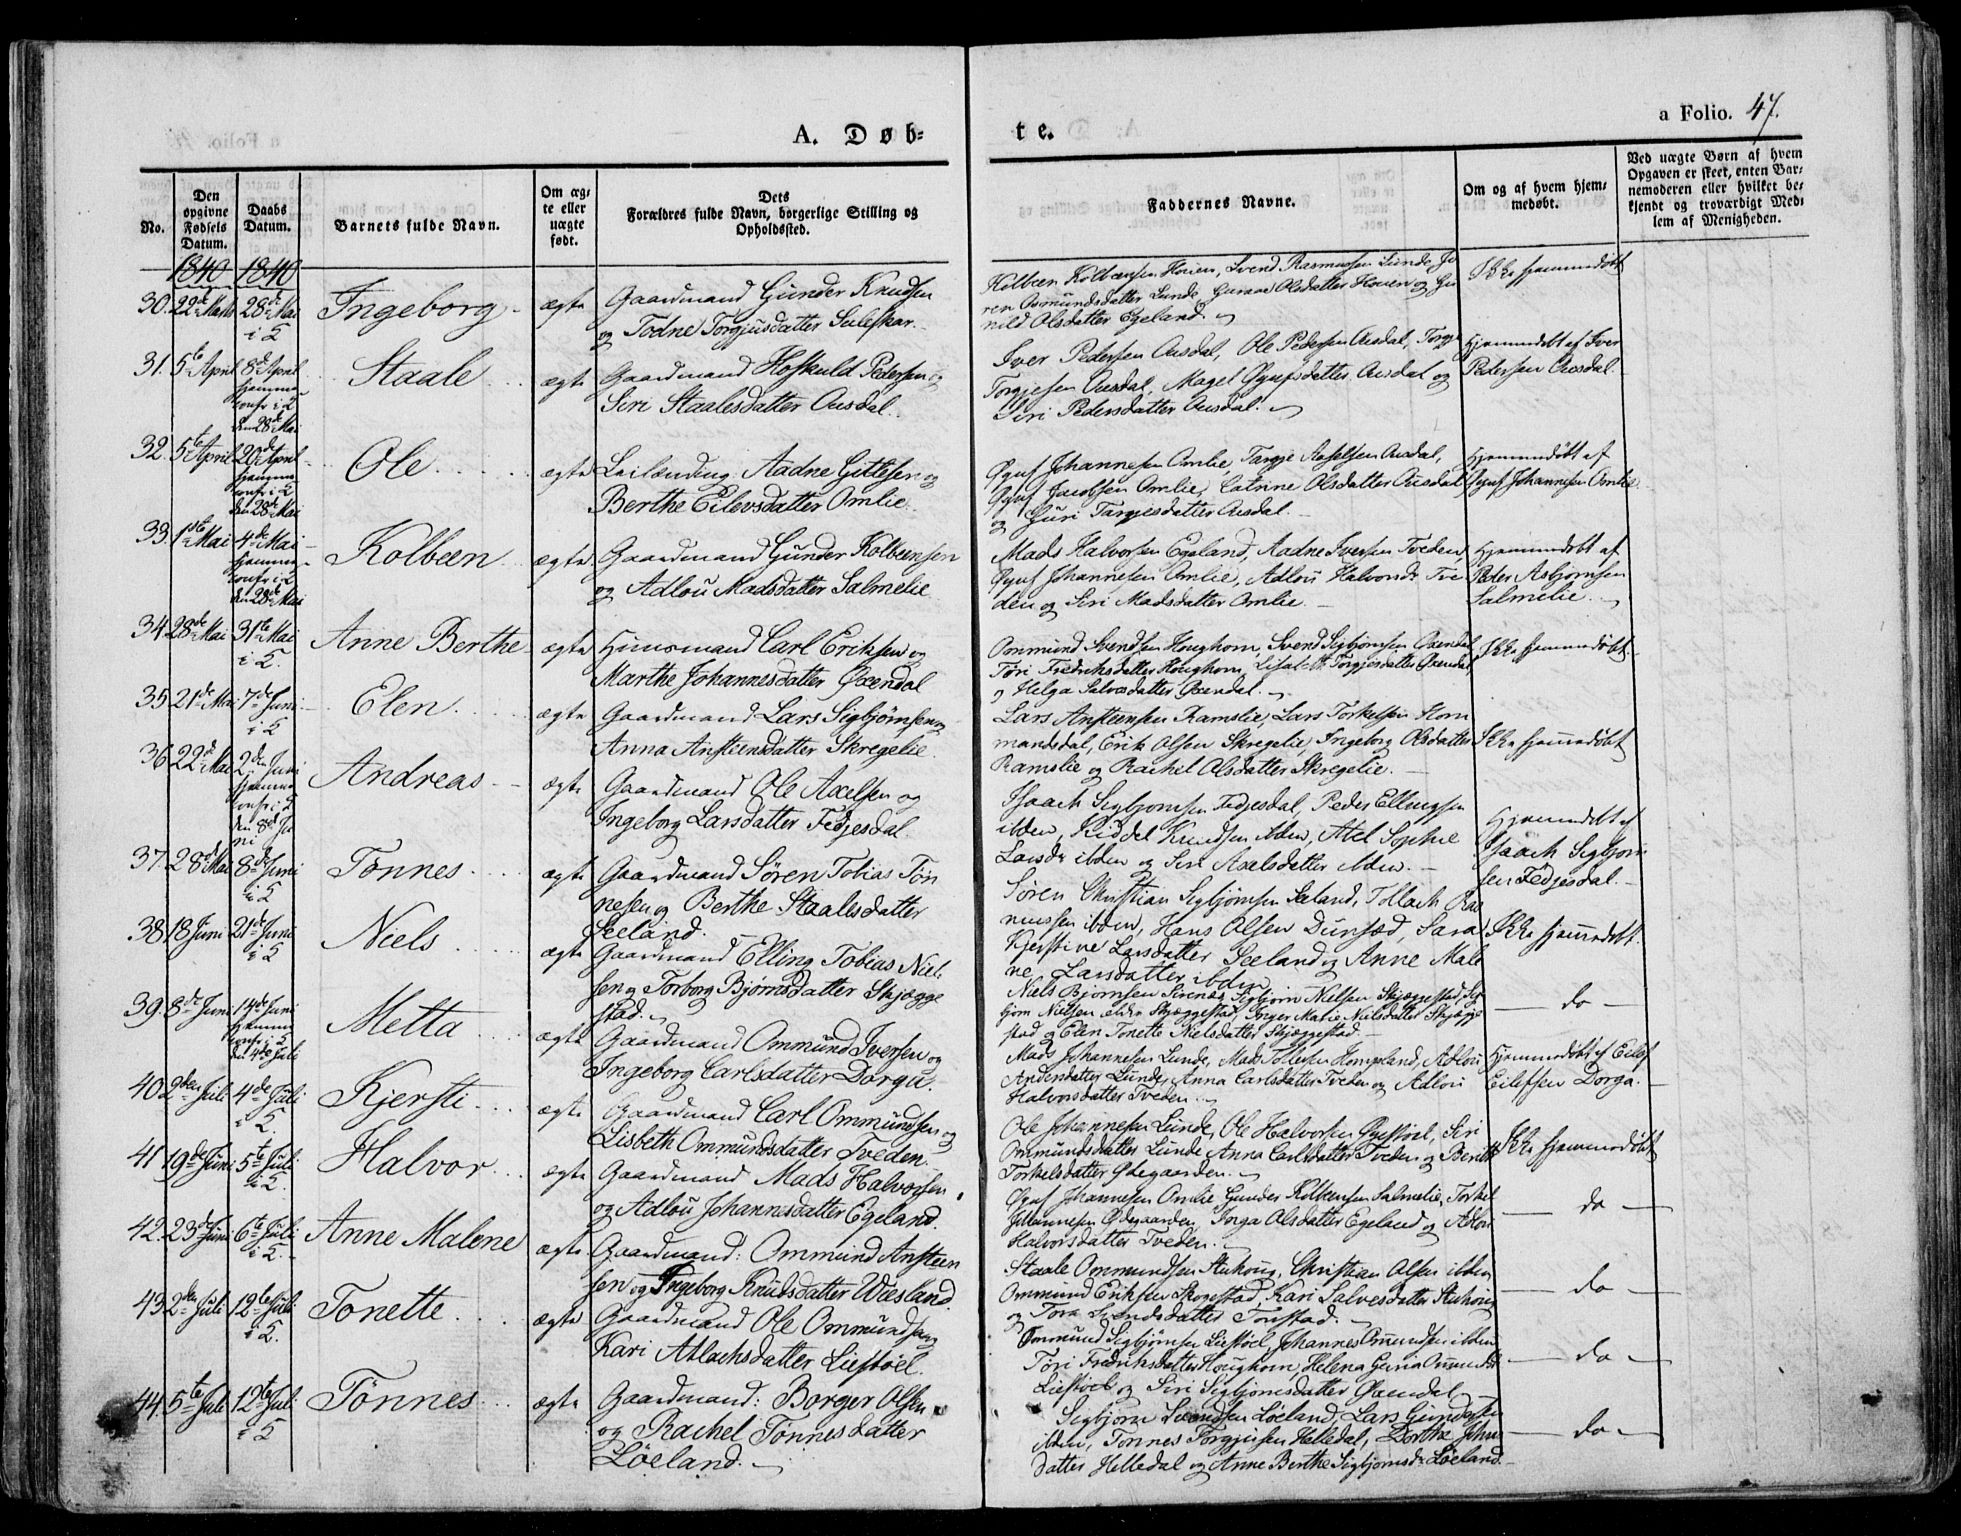 A. Døb=
te.
a Folio. 47.
No.
Den opgivne Fødsels Datum.
Daabs Datum.
Barnets fulde Navn.
Om ægte eller uægte født.
Dets Forældres fulde Navn, borgerlige Stilling og Opholdssted.
Faddernes Navne.
Om og af hvem hjemmedøbt.
Ved uægte Børn af hvem
Opgaven er skeet, enten Bar-
nemoderen eller hvilket be-
kjendt og troværdigt Med-
lem af Menigheden.
1840 1840
30. 22de Marts 28de Mai i K Ingeborg ægte Gaardmand Gunder Knudsen
og Todne Torgjusdatter Suleskar.
Kolbeen Kolbeensen Houen, Svend Rasmussen Lunde,
ren Osmundsdatter Lunde, Gunnar Olsdatter Houen og Gu
nild Olsdatter Egeland.
Ikke hjemmedøbt
31. 5te April 8de April hjemme konfr i K den 28de Mai Staale ægte Gaardmand Hoskuld Pedersen og
Siri Staalesdatter Ousdal.
Iver Pedersen Ousdal, Ole Pedersen Ousdal, Torge
Torgjesen Ousdal, Magel Øyufsdatter Ousdal og
Siri Pedersdatter Ousdal.
Hjemmedøbt af Iver
Pedersen Ousdal.
32. 5te April 20de April hjemme konfr i K den 28de Mai Ole ægte Leilænding Aadne Gitlesen og
Berthe Eilevsdatter Omlie.
Øyuf Johannesen Omlie, Targje Axelsen Ousdal,
Øyuf Jacobsen Omlie, Catrine Olsdatter Ousdal
og Guri Targjesdatter Ousdal.
Hjemmedøbt af
Øyuf Johannesen Omlie.
33. 1ste Mai 4de Mai hjemme konfr i K den 28de Mai Kolbeen ægte Gaardmand Gunder Kolbeensen
og Adlou Madsdatter Salmelie
Mads Halvorsen Egeland, Aadne Iversen Tveden,
Øyuf Johannesen Omlie, Adlou Halvorsdr Tve
den og Siri Madsdatter Omlie
Hjemmedøbt af
Peder Asbjørnsen
Salmelie.
34. 28de Mai 31te Mai i K. Anne Berthe ægte Huusmand Carl Eriksen og
Marthe Johannesdatter Øxendal
Ommund Svendsen Houghom, Svend Sigbjørnsen Øxendal
Tøri Fredriksdatter Houghom, Lisabeth Torgjesdatter Øxendal,
og Helga Salvesdatter Øxendal.
Ikke hjemmedøbt.
35. 21de Mai 7de Juni i K Elen. ægte Gaardmand Lars Sigbjørnsen og
Anna Ansteensdatter Skregelie.
Lars Ansteensen Ramslie, Lars Torkelsen Hom
mandsdal, Erik Olsen Skregelie, Ingeborg Olsdatter
Ramslie og Rachil Olsdatter Skregelie.
Ikke hjemmedøbt
36. 22de Mai 2den Juni hjemme konfr i K den 8de Juni Andreas ægte Gaardmand Ole Axelsen og
Ingeborg Larsdatter Fedjesdal
Isaach Sigbjørnsen Fedjesdal, Peder Ellingsen
ibden, Riddel Knudsen ibden, Atel Sophie
Larsdr ibden og Siri Axelsdatter ibden.
Hjemmedøbt af
Isaach Sigbjørn
sen Fedjesdal.
37. 28de Mai 8de Juni i K Tønnes ægte Gaardmand Søren Tobias Tøn
nesen og Berthe Staalesdatter
Seeland.
Søren Christian Sigbjørnsen Seeland, Tollach Ras
mussen ibden, Hans Olsen Dunsæd, Sara
Kjerstine Larsdatter Seeland og Anne Male
ne Larsdatter ibden
Ikke hjemmedøbt.
38. 18 Juni 21de Juni i K Niels ægte Gaardmand Elling Tobias Niel
sen og Torborg Bjørnsdatter Skjægge
stad.
Niels Bjørnsen Sirenæs, Sigbjørn Nielsen Skjæggestad, Sig
bjørn Nielsen ældre Skjæggestad, Inger Marie Nielsdatter Skjægge
stad og Elen Tonette Nielsdatter Skjæggestad
do
39. 8de Juni 14de Juni hjemme konfr i K den 4de Juli Metta ægte Gaardmand Ommund Iversen og
Ingeborg Carlsdatter Dorga.
Mads Johannesen Lunde, Mads Tollefsen Hompland, Adlou
Andersdatter Lunde, Anna Carlsdatter Tveden og Adlou
Halvorsdatter Tveden.
Hjemmedøbt af Eilef
Eilefsen Dorga.
40. 2den Juli 4de Juli i K. Kjersti ægte Gaardmand Carl Ommundsen og
Lisbeth Ommundsdatter Tveden.
Ole Johannesen Lunde, Ole Halvorsen Øyestøel, Siri
Ommundsdatter Lunde, Anna Carlsdatter Tveden og Berith
Torkelsdatter Ødegaarden.
Ikke hjemmedøbt
41. 19de Juni 5te Juli i K. Halvor ægte Gaardmand Mads Halvorsen
og Adlou Johannesdatter Egeland.
Øyuf Johannesen Omlie, Gunder Kolbeensen Salmelie, Torkel
Johannesen Ødegaarden, Inga Olsdatter Egeland og Adlou
Halvorsdatter Tveden.
do
42. 23de Juni 6te Juli i K. Anne Malene ægte Gaardmand: Ommund Ansteen
sen og Ingeborg Knudsdatter Wiesland
Staale Ommundsen Stuhoug, Christian Olsen ibden
Ommund Eriksen Skorestad, Kari Salvesdatter Stuhoug
og Tora Svendsdatter Tonstad.
do
43. 2den Juli 12te Juli i K. Tonette ægte Gaardmand Ole Ommundsen og
Kari Atlachsdatter Liestøel.
Ommund Sigbjørnsen Liestøel, Johannes Ommundsen ibden
Tøri Fredriksdatter Houghom, Helena Guria Ommundsdr
Liestøel og Siri Sigbjørnsdatter Øxendal
do
44. 5te Juli 12te Juli i K Tønnes ægte Gaardmand: Borger Olsen
og Rachel Tønnesdatter
Løeland.
Sigbjørn Svendsen Løeland, Lars Gundersen
ibden, Tønnes Torgjusen Helledal, Dorthe Johns
datter Helledal og Anne Berthe Sigbjørnsdr Løeland.
do